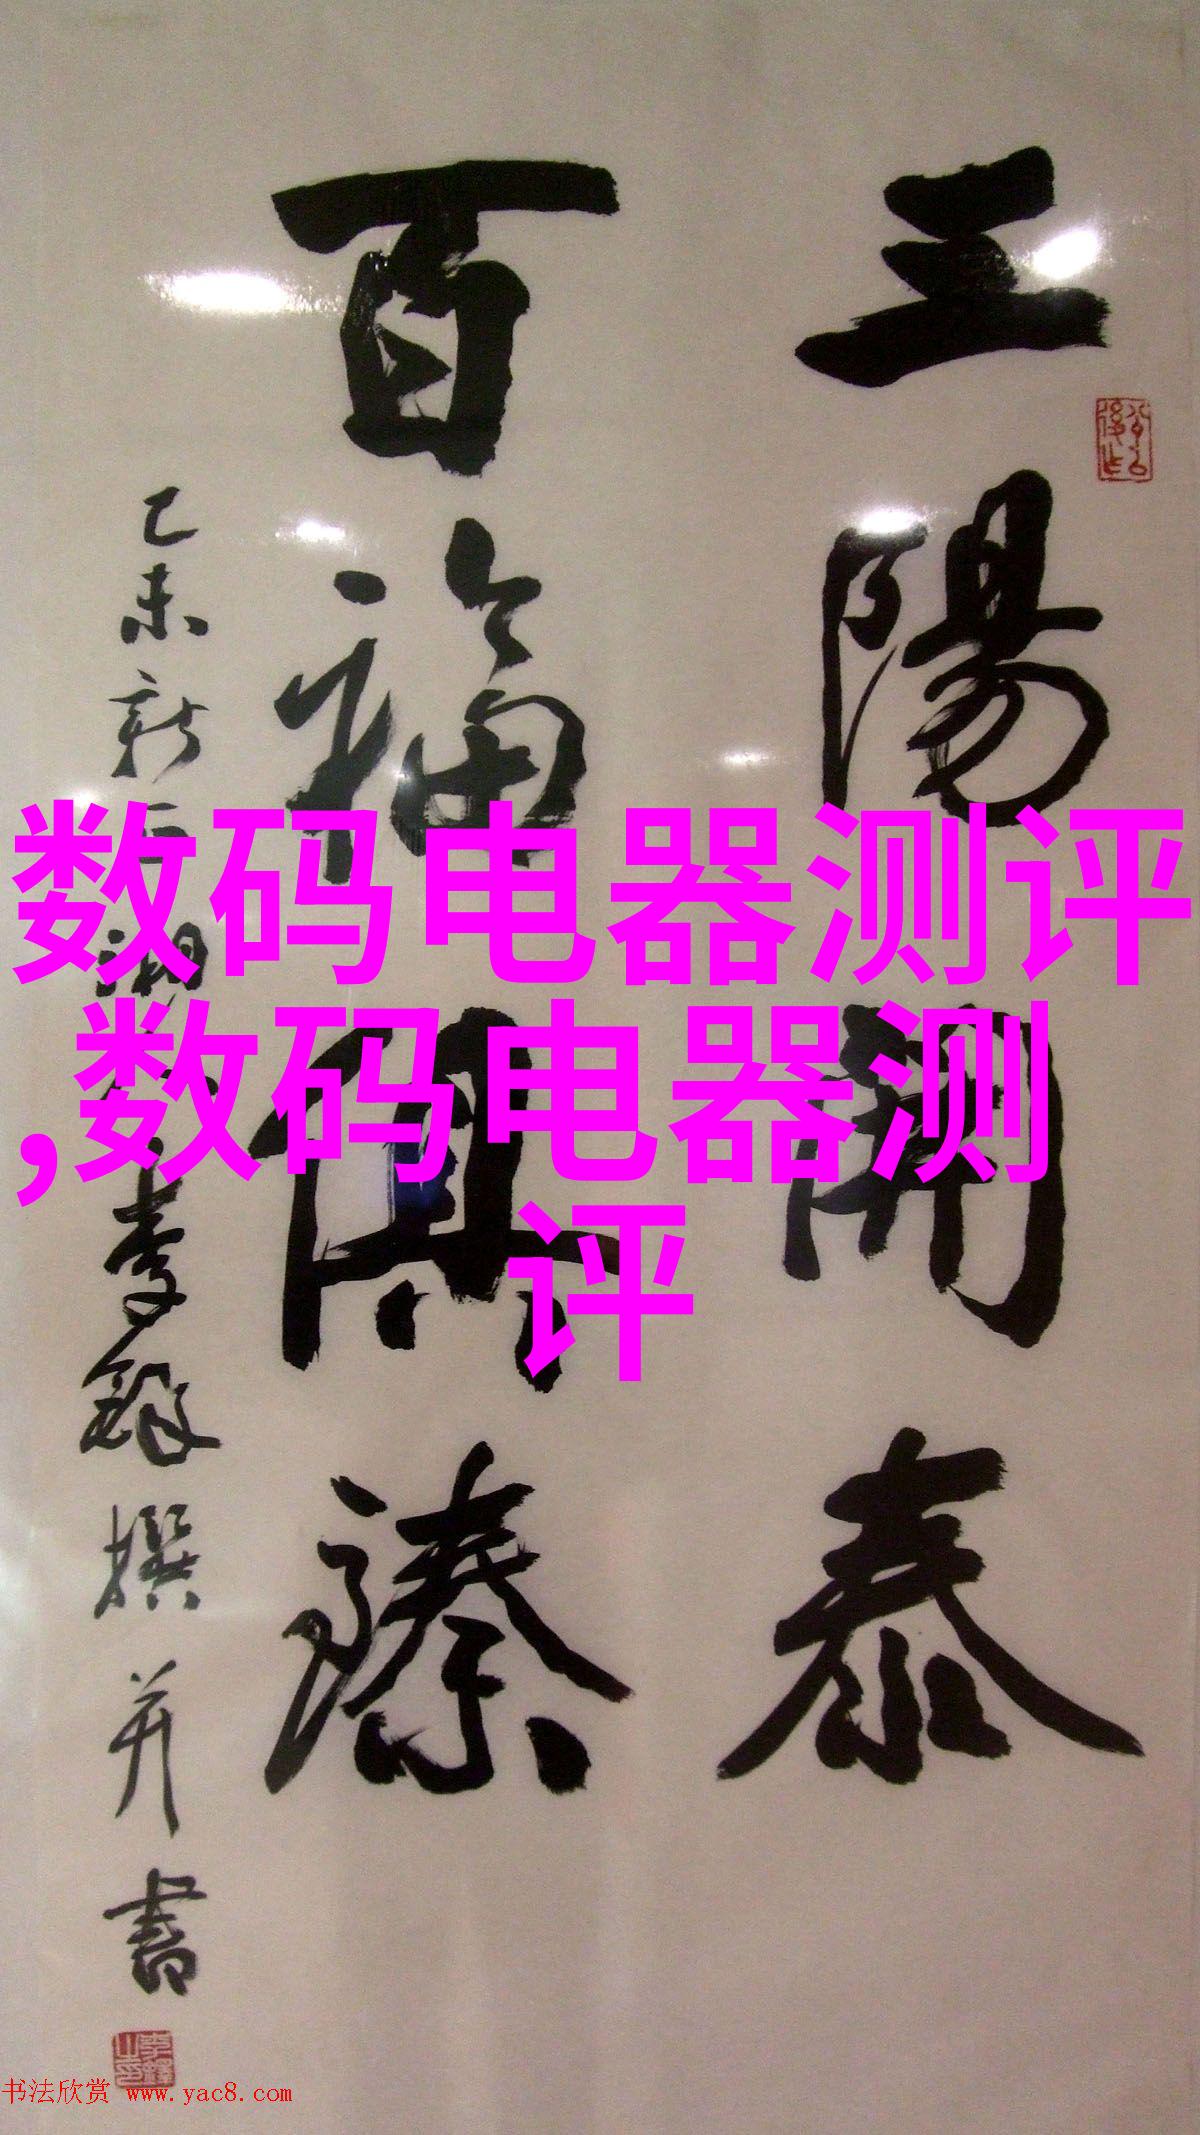 三陽開泰
百福俱臻
乙未新正湖人李鐸撰并書
数码电器测评
,数码电器测
评
书法欣赏 www.yac8.com